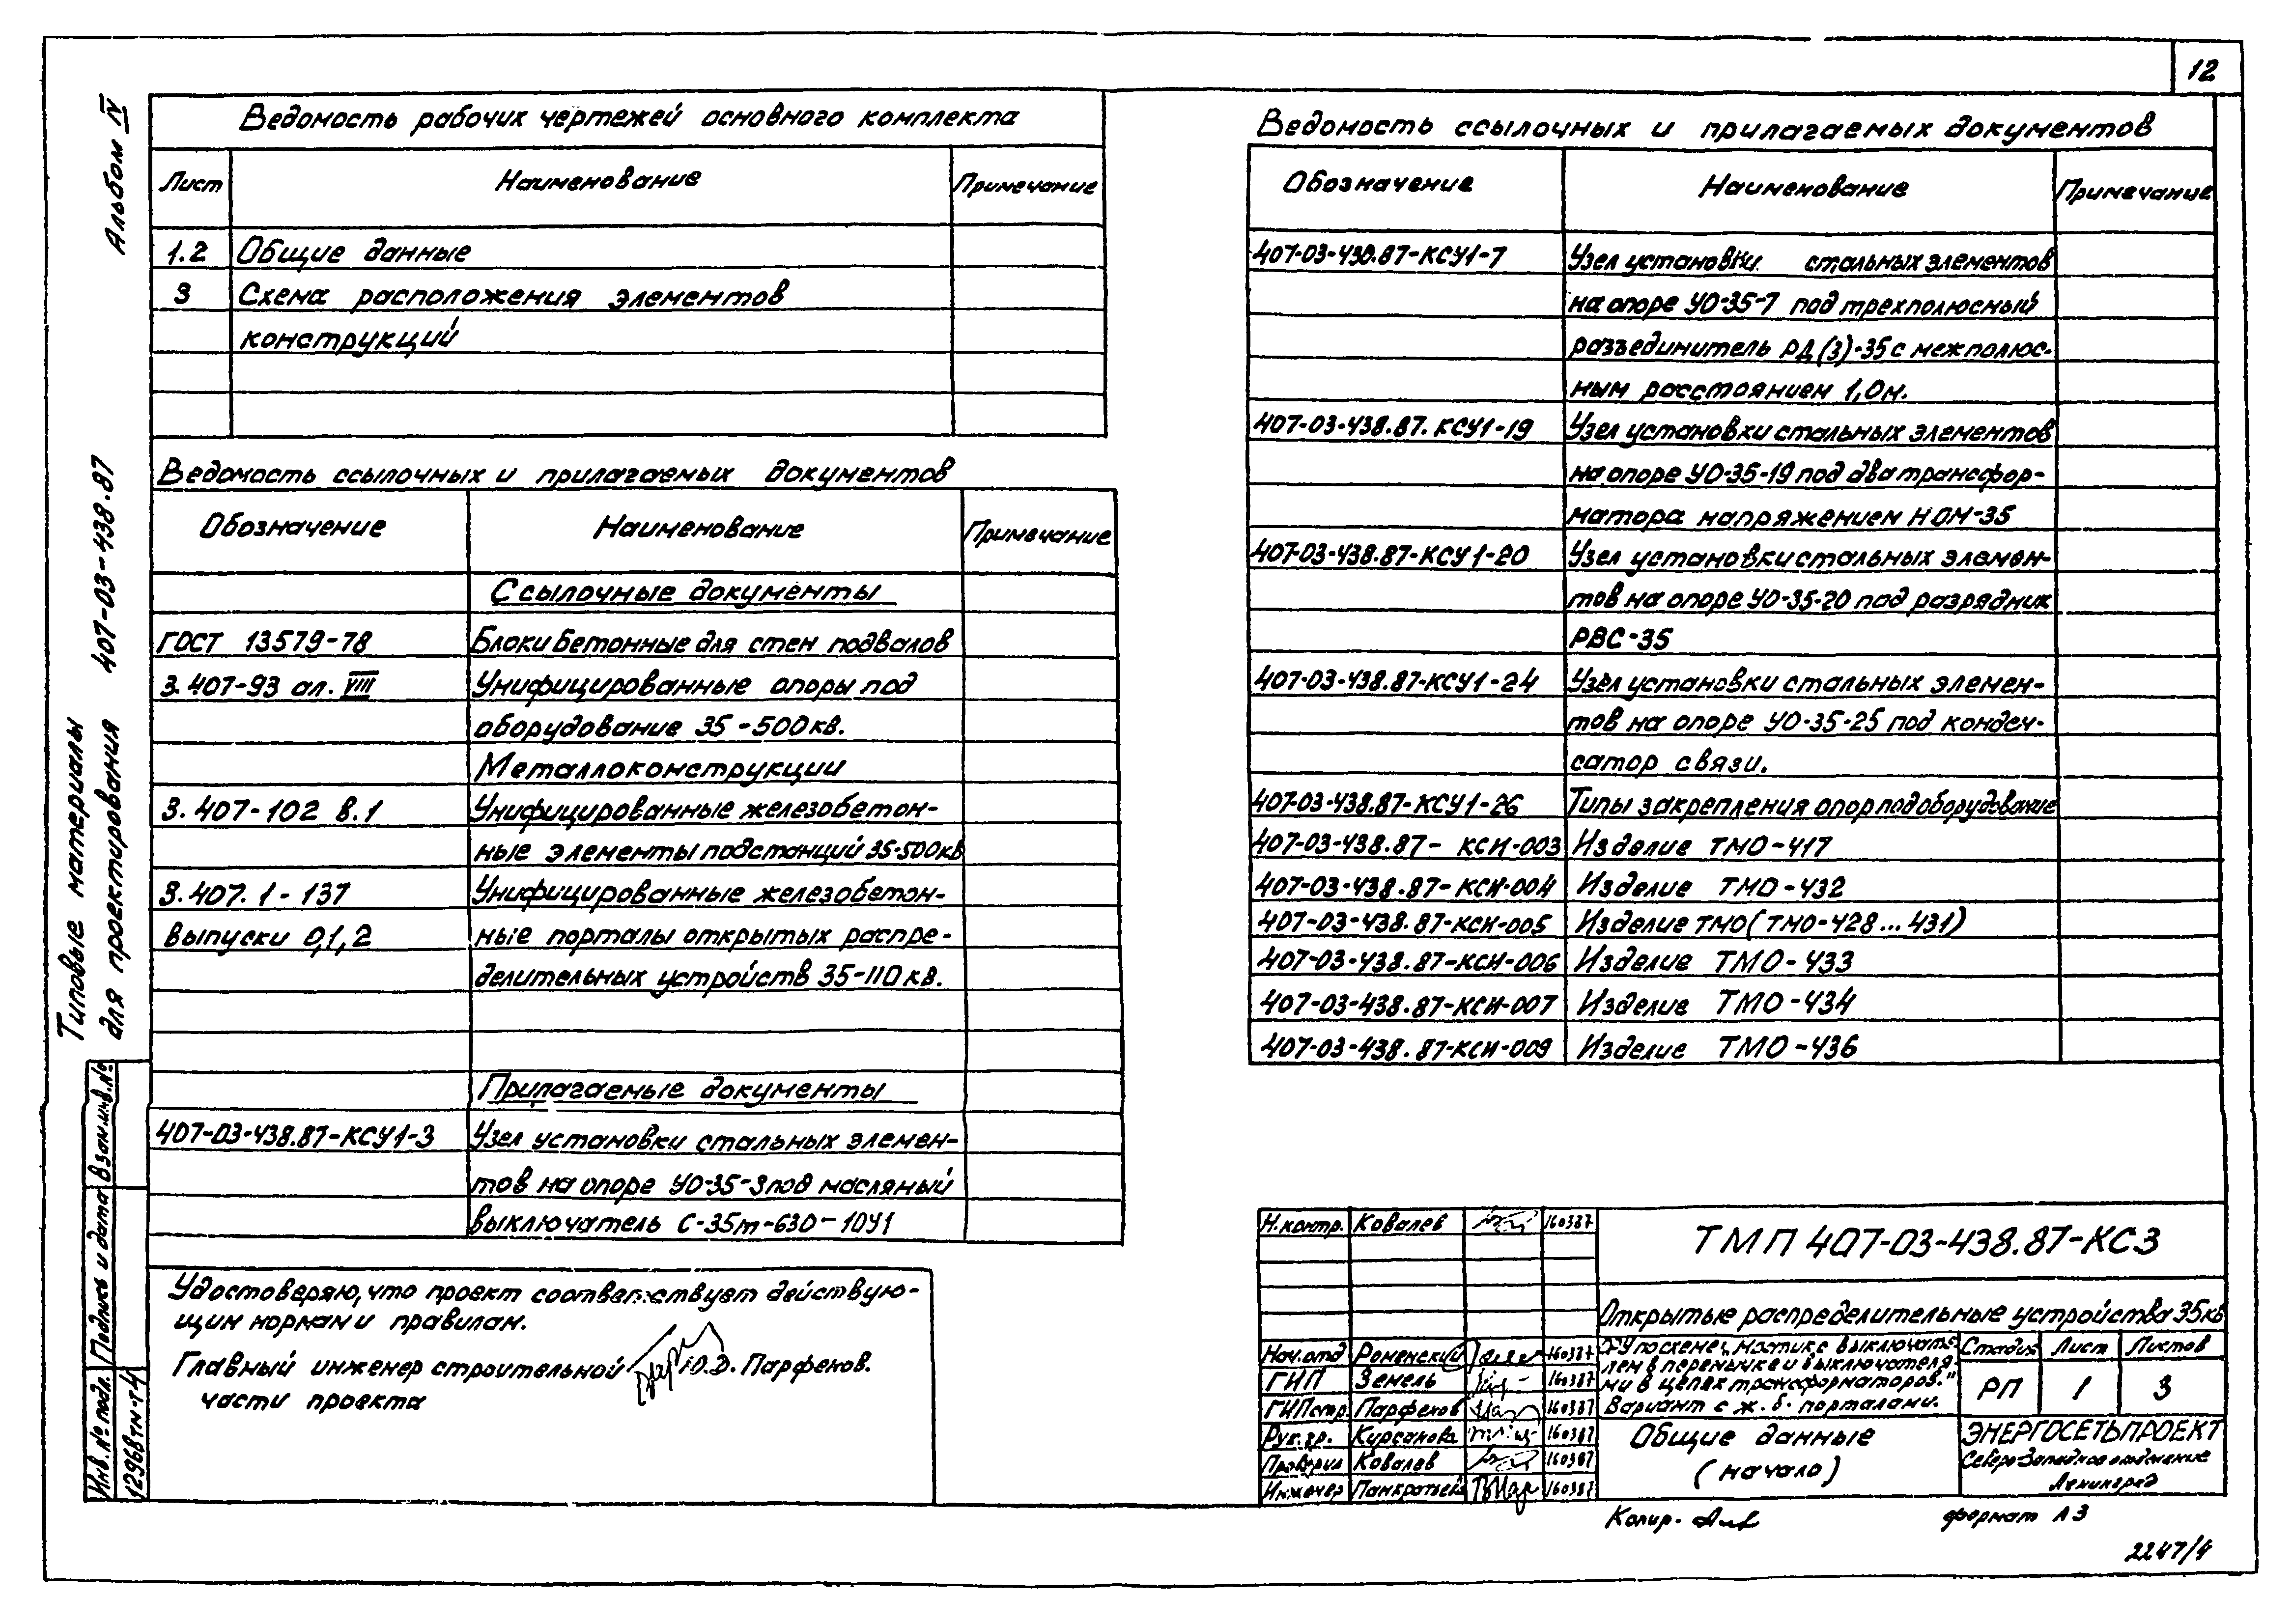 12
Альбом IV
Типовые материалы
для проектирования 407-03-438.87
Ведомость рабочих чертежей основного комплекта
Лист Наименование Примечание
1.2 Общие данные
3 Схема расположения элементов
конструкций
Ведомость ссылочных и прилагаемых документов
Обозначение Наименование Примечание
Ссылочные документы
ГОСТ 13579-78 Блоки бетонные для стен подвалов
3.407-93 ал. VIII Унифицированные опоры под
оборудование 35-500кв.
Металлоконструкции
3.407-102 в.1 Унифицированные железобетон-
ные элементы подстанций 35-500кв
3.407.1-137 Унифицированные железобетон-
выпуски 0,1,2 ные порталы открытых распре-
делительных устройств 35-110кв.
Прилагаемые документы
407-03-438.87-КСУ1-3 Узел установки стальных элемен-
тов на опоре УО-35-3 под масляный
выключатель С-35м-630-10У1
Удостоверяю, что проект соответствует действую-
щим нормам и правилам.
Главный инженер строительной Ю.Д. Парфенов.
части проекта
Взам.инв.№
Подпись и дата
Инв.№ подл.
12968тм-т4
Ведомость ссылочных и прилагаемых документов
Обозначение Наименование Примечание
407-03-438.87-КСУ1-7 Узел установки стальных элементов
на опоре УО-35-7 под трехполюсный
разъединитель РД(З)-35 с межполюс-
ным расстоянием 1,0м.
407-03-438.87.КСУ1-19 Узел установки стальных элементов
на опоре УО-35-19 под два трансфор-
матора напряжением НОМ-35
407-03-438.87-КСУ1-20 Узел установки стальных элемен-
тов на опоре УО-35-20 под разрядник
РВС-35
407-03-438.87-КСУ1-24 Узел установки стальных элемен-
тов на опоре УО-35-25 под конден-
сатор связи.
407-03-438.87-КСУ1-26 Типы закрепления опор под оборудование
407-03-438.87-КСИ-003 Изделие ТМО-417
407-03-438.87-КСИ-004 Изделие ТМО-432
407-03-438.87-КСИ-005 Изделие ТМО(ТМО-428...431)
407-03-438.87-КСИ-006 Изделие ТМО-433
407-03-438.87-КСИ-007 Изделие ТМО-434
407-03-438.87-КСИ-009 Изделие ТМО-436
Н.контр. Ковалев 160387
ТМП 407-03-438.87-КС3
Открытые распределительные устройства 35кв
Нач.отд Роменский 160387
ГИП Земель 160387
ГИПстр. Парфенов 160387
Рук.гр. Курсанова 160387
Проверил Ковалев 160387
Инженер Панкратьева 160387
ОРУ по схеме „мостик с выключате-
лем в перемычке и выключателя-
ми в цепях трансформаторов."
Вариант с ж.б. порталами.
Стадия Лист Листов
РП 1 3
Общие данные
(начало)
ЭНЕРГОСЕТЬПРОЕКТ
Северо-Западное отделение
Ленинград
Копир.
формат А3
2247/4